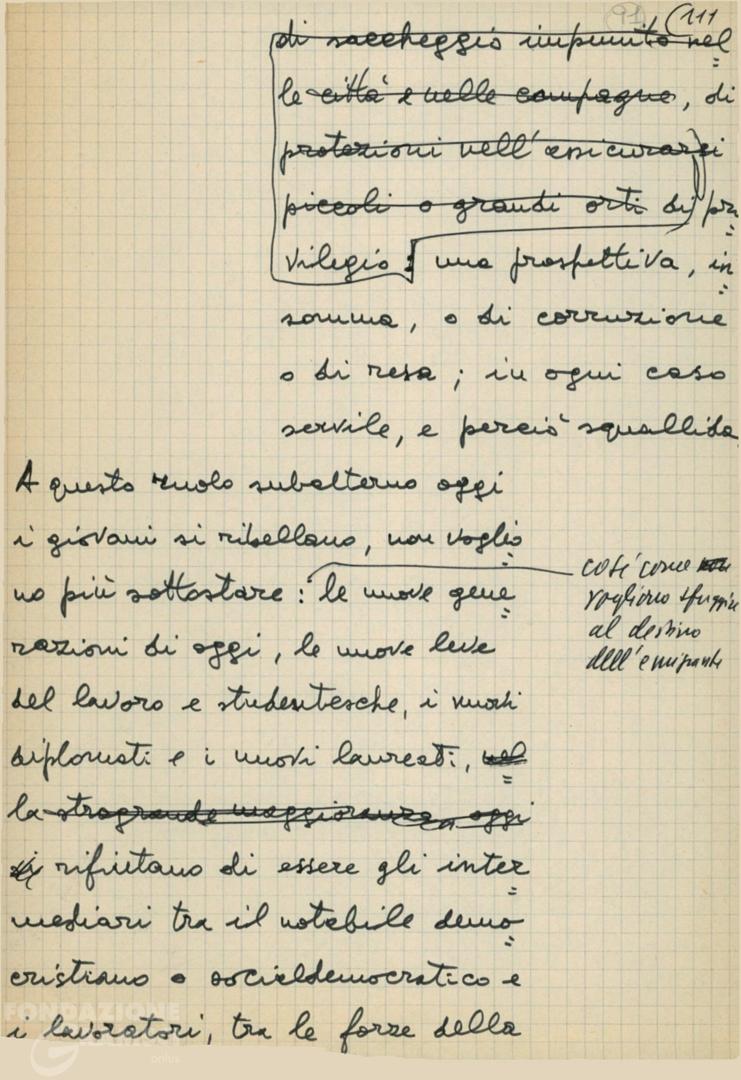 (91) (111
di saccheggio impunito nel=
le città e nelle campagne, di
protezioni nell'assicurarsi
piccoli o grandi orti di pri=
vilegio: una prospettiva, in=
somma, o di corruzione
o di resa; in ogni caso
servile, e perciò squallida.
A questo ruolo subalterno oggi
i giovani si ribellano, non voglio=
no più sottostare: le nuove gene=
razioni di oggi, le nuove leve
del lavoro e studentesche, i nuovi
diplomati e i nuovi laureati, nel=
la stragrande maggioranza, oggi
rifiutano di essere gli inter=
mediari tra il notabile demo=
cristiano o socialdemocratico e
i lavoratori, tra le forze della
così come
vogliono sfuggire
al destino
dell'emigrante
FONDAZIONE
onlus